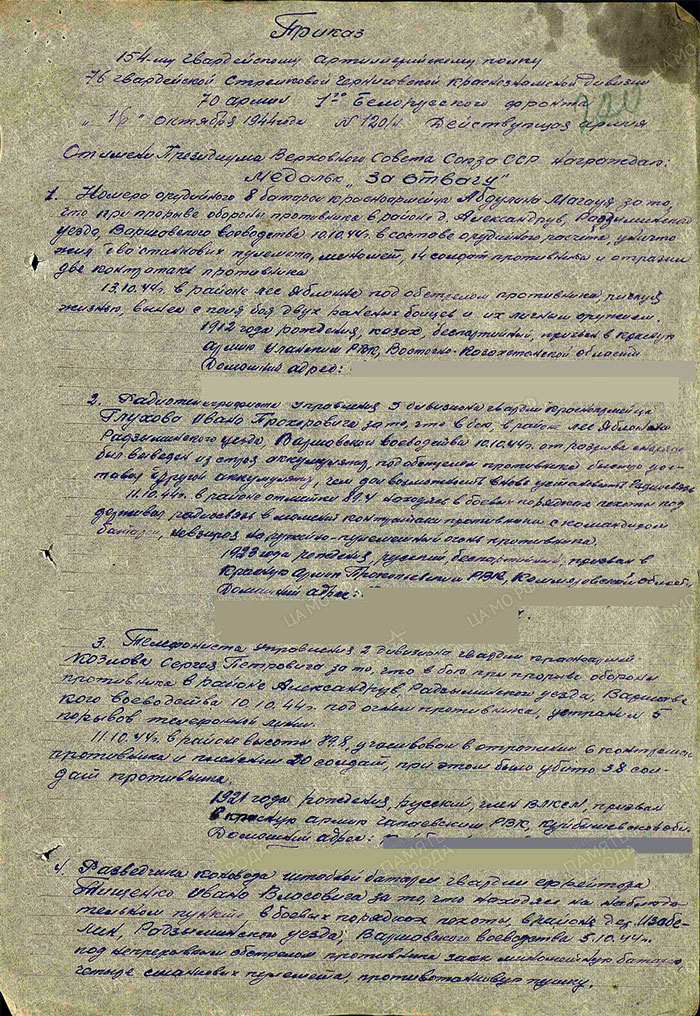 Приказ
154-му гвардейскому артиллерийскому полку
76 гвардейской Стрелковой Черниговской Краснознаменной дивизии
70 армии 1го Белорусского фронта
"16" октября 1944 года N 120/н Действующая армия
От имени Президиума Верховного Совета Союза ССР награждаю:
Медалью "За отвагу"
1. Номера орудийного 8 батареи красноармейца Абдулина за то,
что при прорыве обороны противника в районе д. Александрув, Радзиминского
уезда, Варшавского воеводства 10.10.44г. в составе орудийного расчета, уничто-
жил два станковых пулемета, миномет, 14 солдат противника и отразил
две контратаки противника
13.10.44г. в районе лес Яблонна под обстрелом противника, рискуя
жизнью, вынес с поля боя двух раненых бойцов и их личным оружием.
1912 года рождения, казах, беспартийный, призван в Красную
Армию Уланским РВК, Восточно-Казахстанской области
Домашний адрес:
2. Радиотелефониста управления 3 дивизиона гвардии красноармейца
Глухова Ивана Прохоровича за то, что в бою, в районе лес Яблонна
Радзиминского уезда, Варшавского воеводства 10.10.44г. от разрыва снаряда
был выведен из строя аккумулятор, под обстрелом противника быстро дос-
тавил другой аккумулятор, чем дал возможность вновь установить радиосвязь
11.10.44г. в районе отметки 89.4 находясь в боевых порядках пехоты под-
держивал радиосвязь в момент контратаки противника с командиром
батареи, невзирая на ружейно-пулеметный огонь противника.
1923 года рождения, русский, беспартийный, призван в
Красную Армию Прокопьевским РВК, Кемеровской области,
Домашний адрес:
3. Телефониста управления 2 дивизиона гвардии красноармейца
Козлова Сергея Петровича за то, что в бою при прорыве обороны
противника в районе Александрув, Радзыминского уезда, Варшавс-
кого воеводства 10.10.44г. под огнем противника, устранил 5
порывов телефонной линии.
11.10.44г. в районе высоты 89.8, участвовал в отражении 6 контратак
противника и пленении 20 солдат, при этом было убито 38 сол-
дат противника.
1921 года рождения, русский, член ВЛКСМ, призван
в Красную армию Чапаевским РВК, Куйбышевской обл.
Домашний адрес:
4. Разведчика коновода штабной батареи гвардии ефрейтора
Тищенко Ивана Власовича за то, что находясь на наблюда-
тельном пункте в боевых порядках пехоты, в районе дер. Изабе-
лин, Радзыминского уезда, Варшавского воеводства 5.10.44г.
под непрерывным обстрелом противника засек минометную батарею
четыре станковых пулемета, противотанковую пушку.